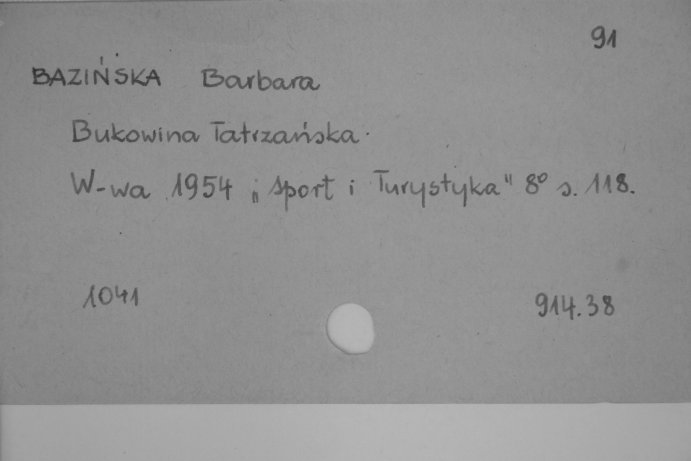 91
BAZIŃSKA Barbara
Bukowina Tatrzańska.
W-wa 1954 „Sport i Turystyka" 8° s. 118.
1041
914.38